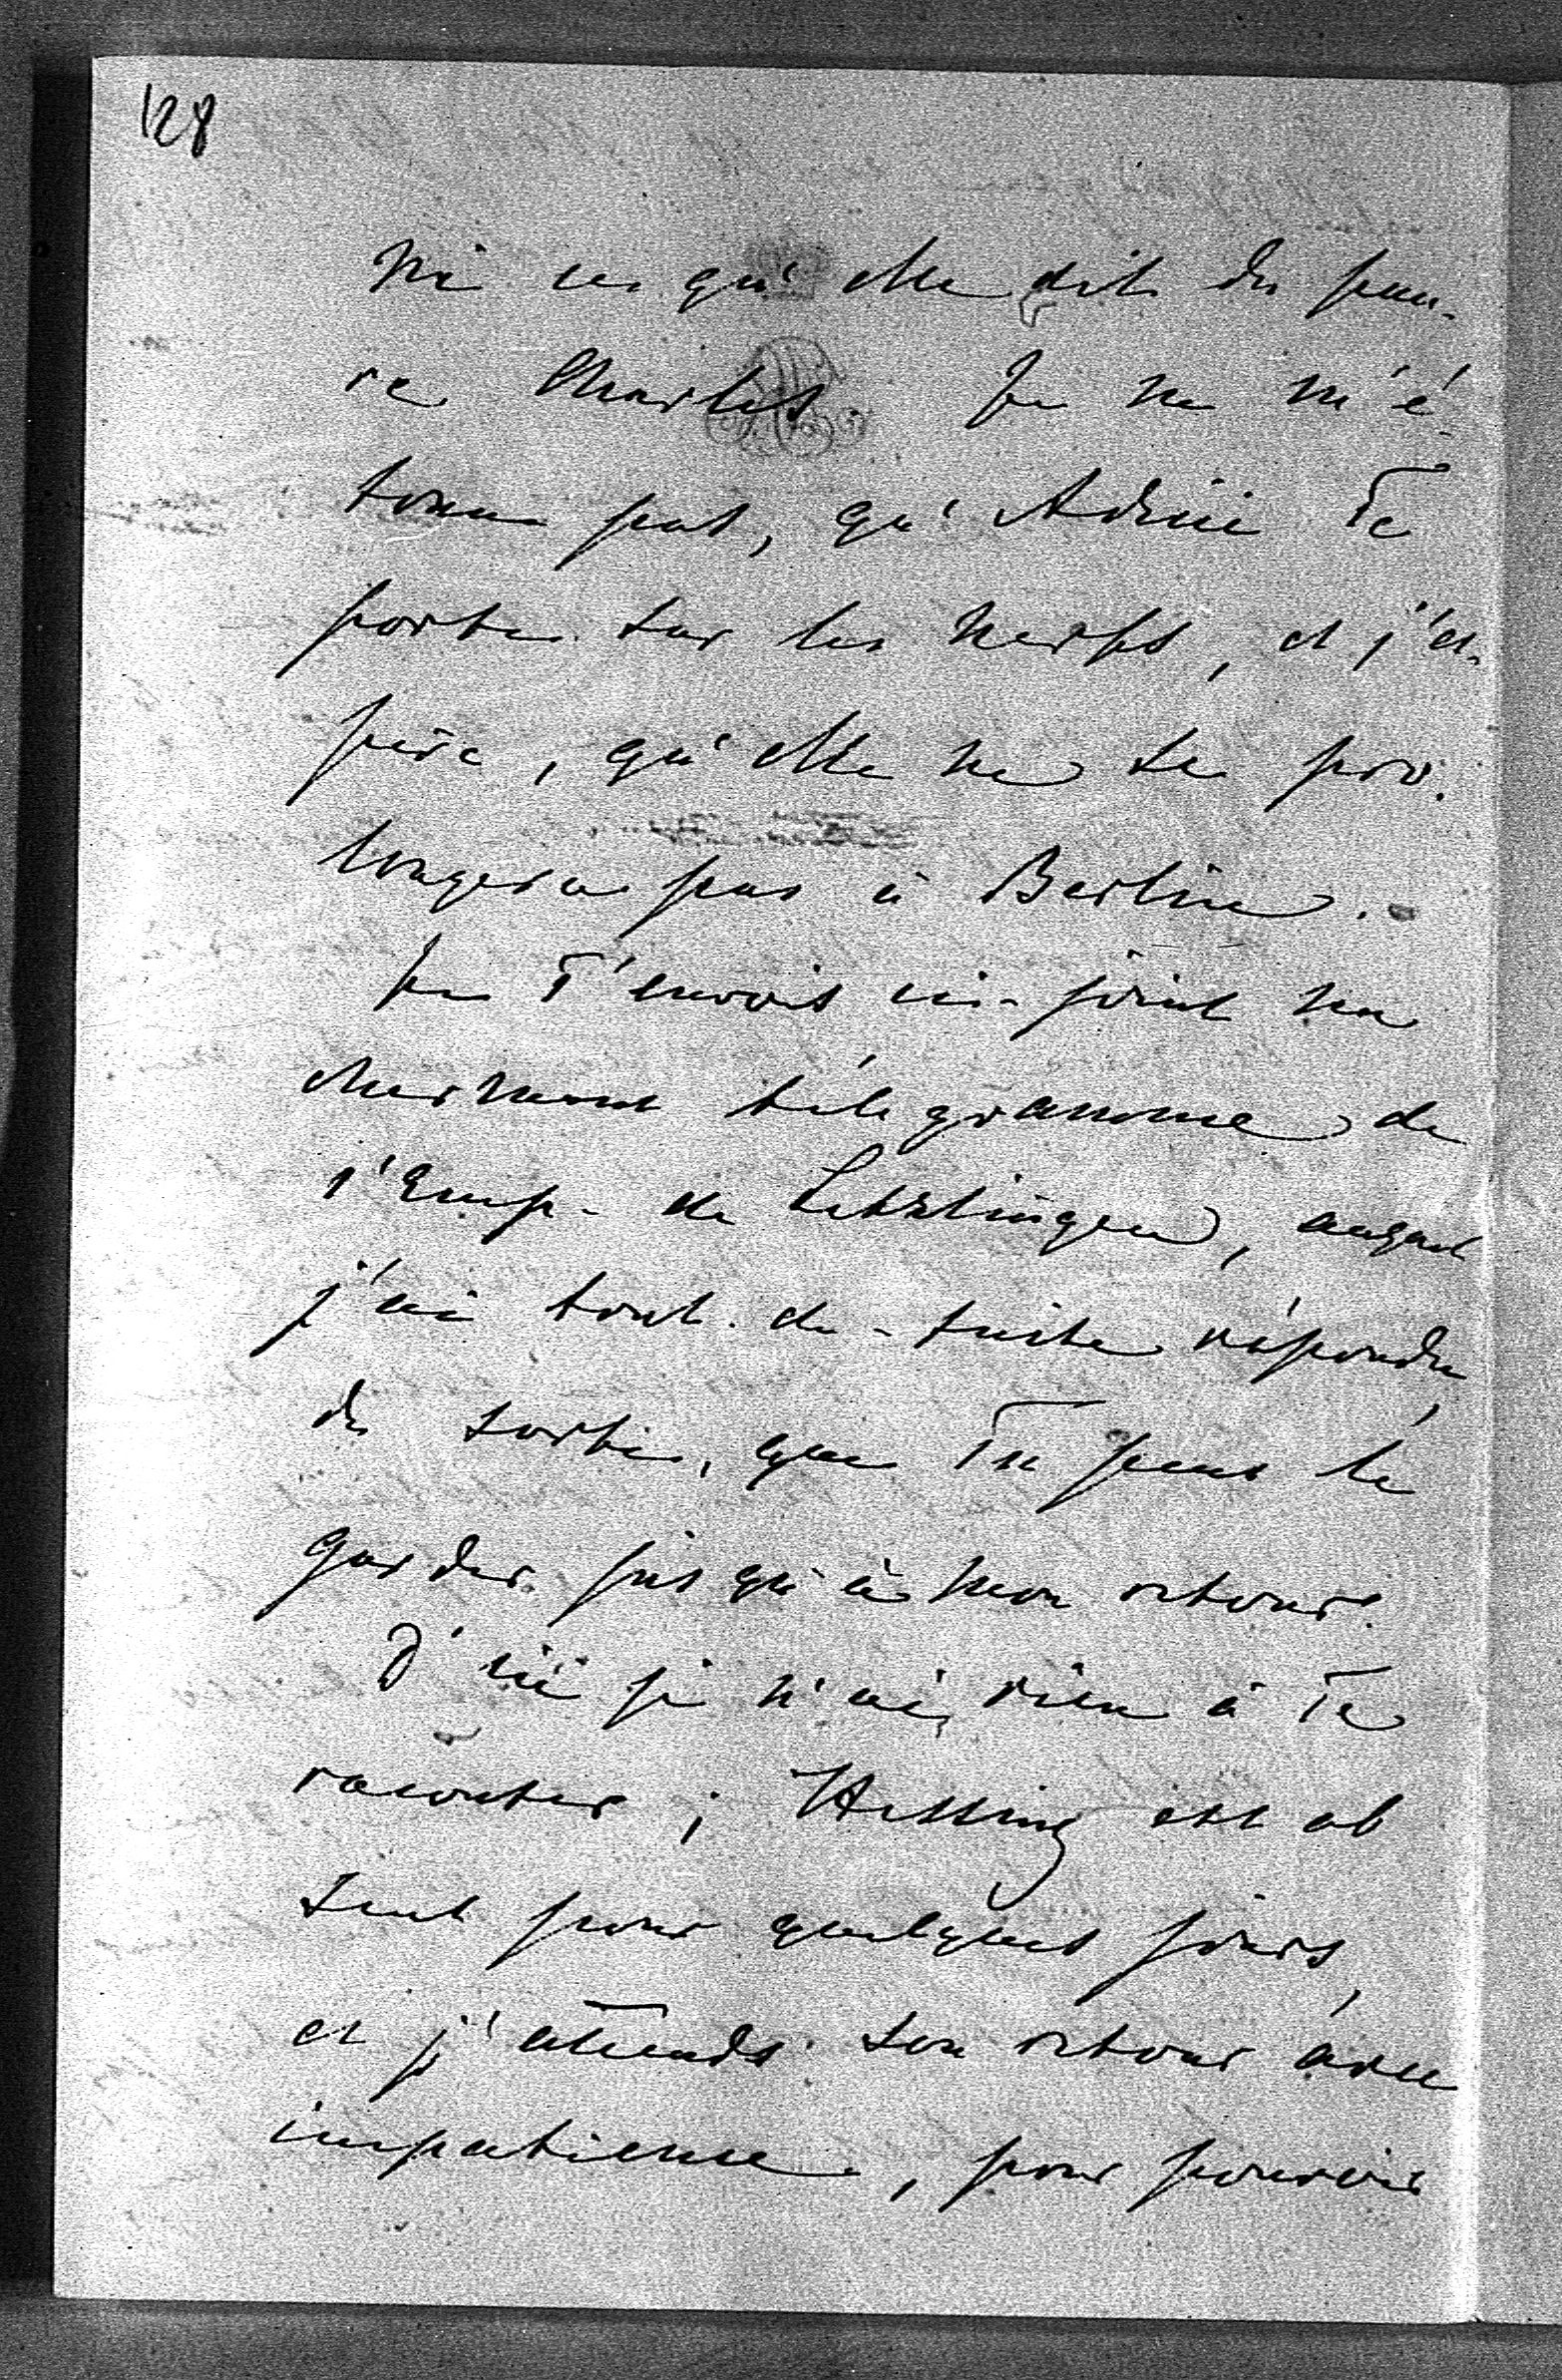 128
ni ce qu'elle dit du pau-
re Charles. Je ne m'é-
tonne pas, qu'Adini Te
porte sur les nerfs, et j'es-
père, qu'elle ne se pro-
longera pas à Berlin.
Je T'envois ci-joint un
charmant télégramme de
l'Emp. de Letzlingen, auquel
j'ai tout-de-suite répondu,
de sorte, que Tu peux le
garder jusqu'à mon retour.
D'ici je n'ai rien à Te
raconter; Hessing est ab
sent pour quelques jours,
et j'attends son retour avec
impatience, pour pouvoir